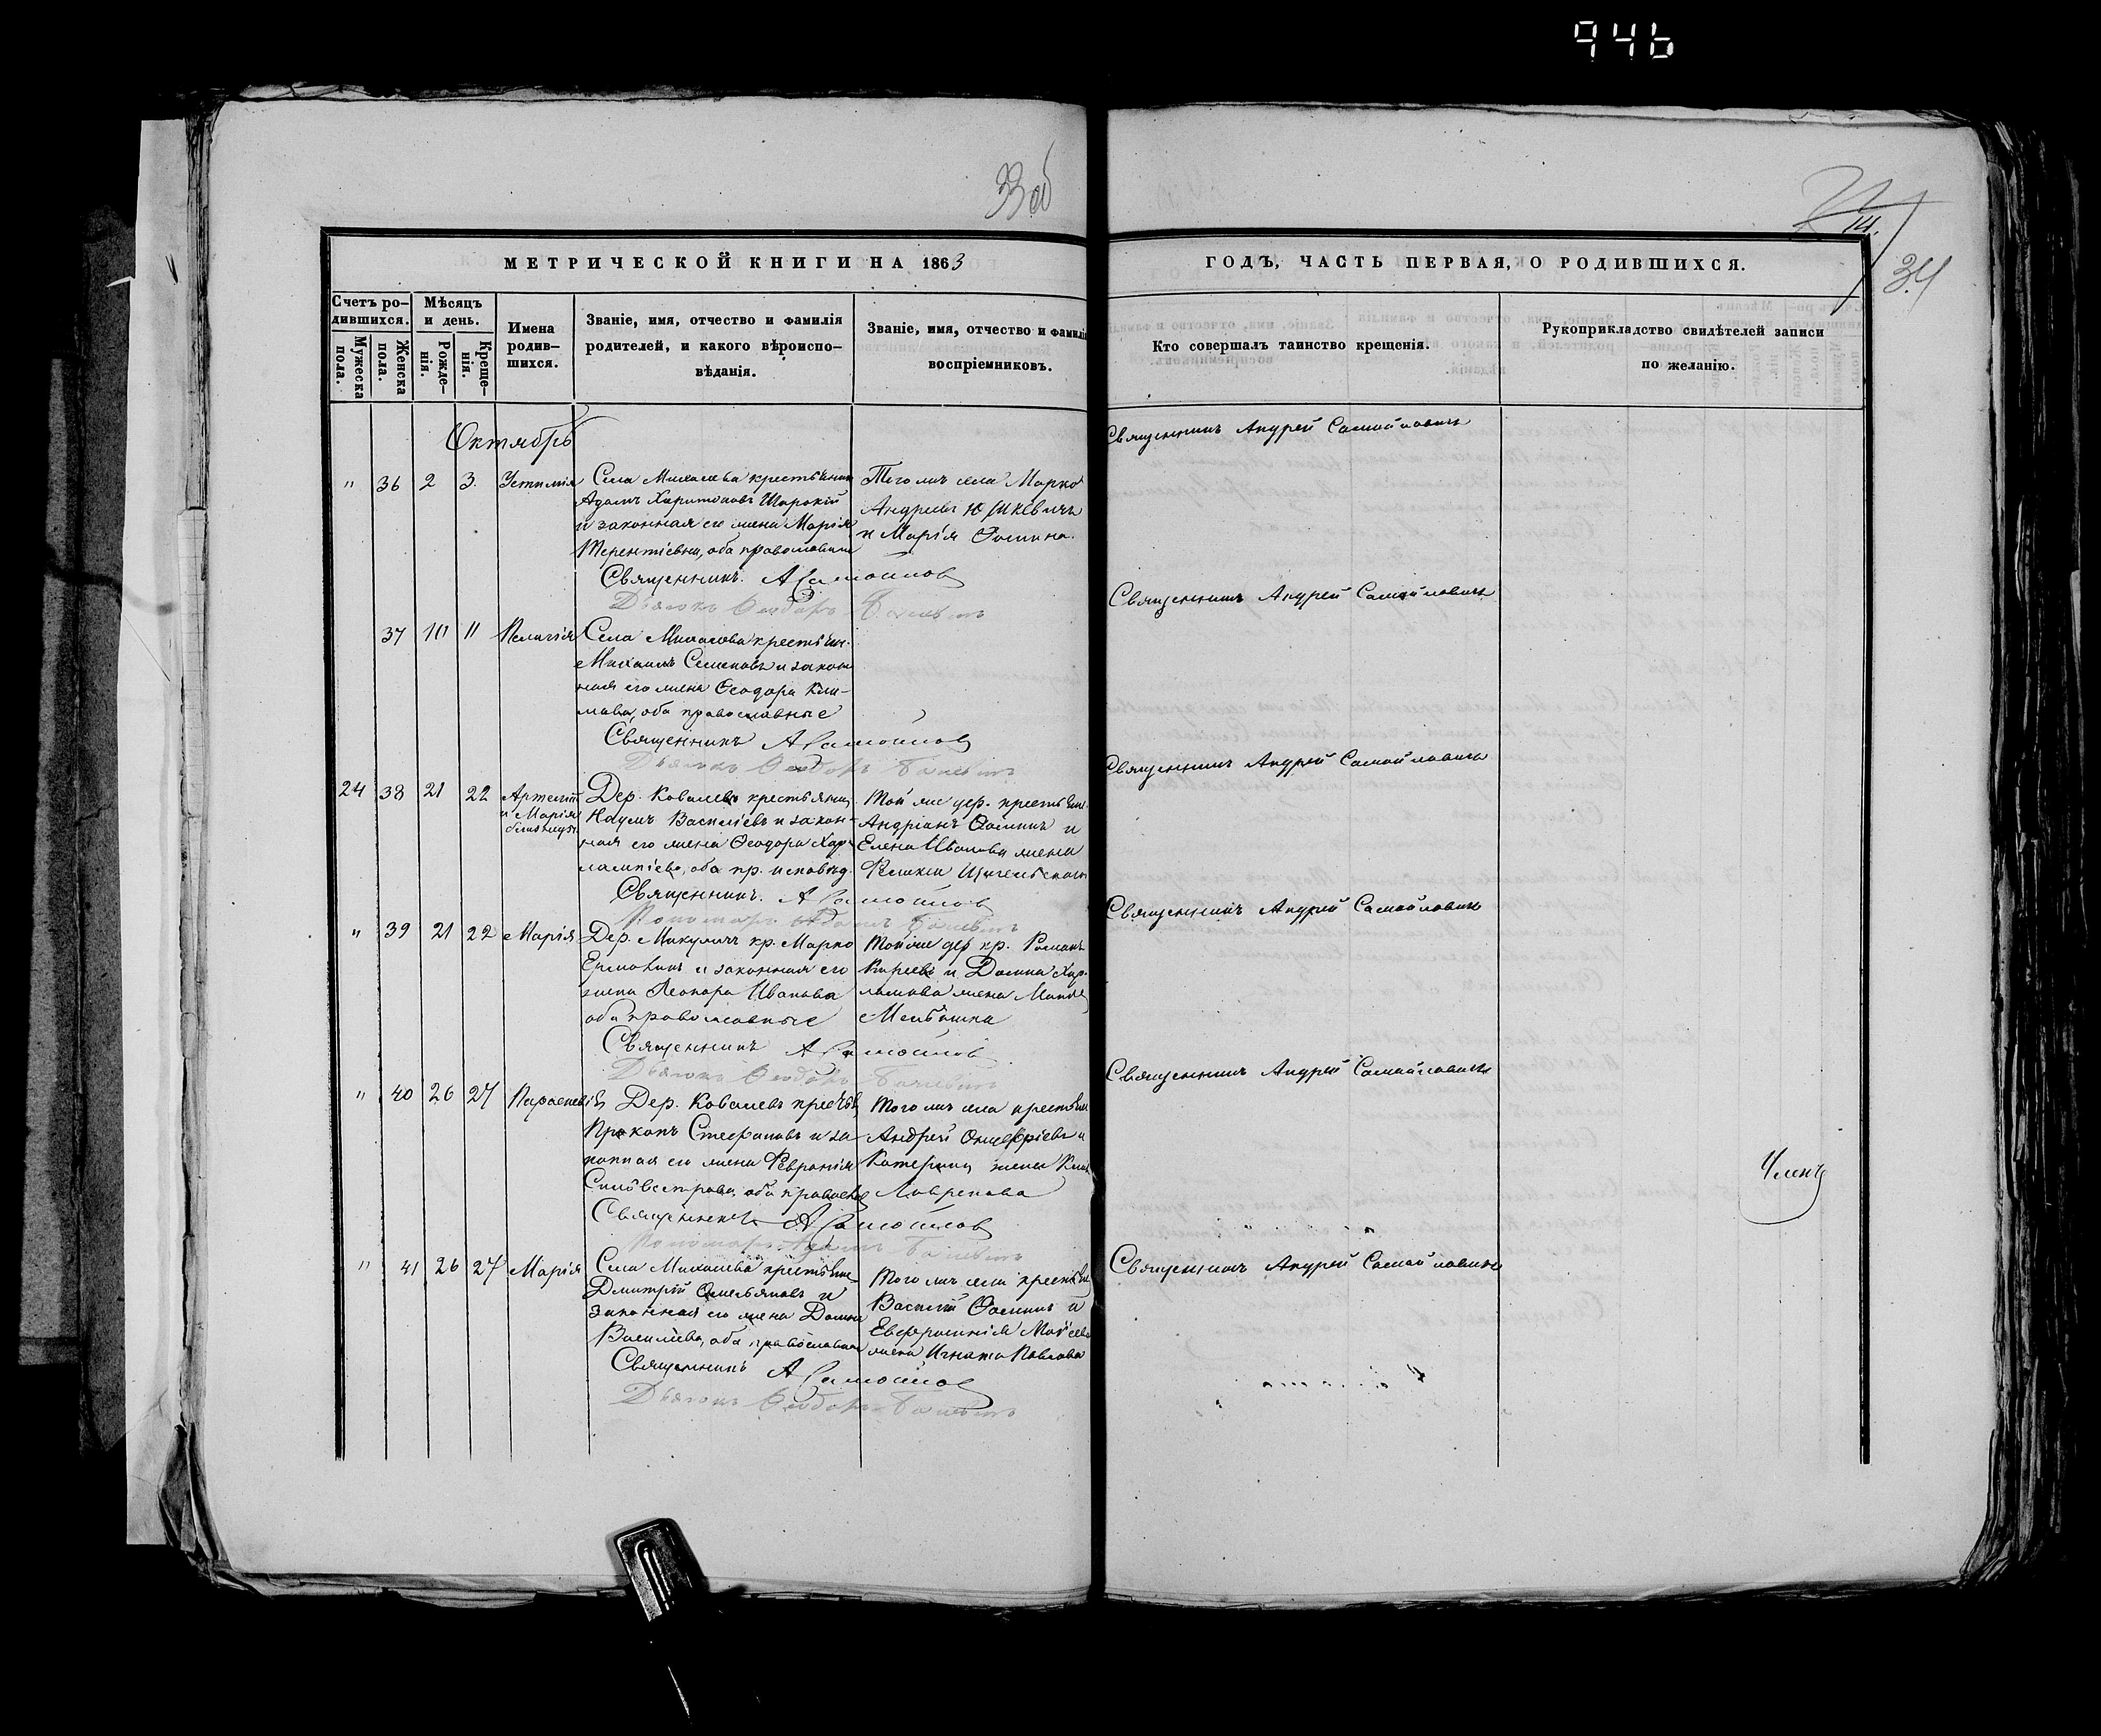 946
33 об
14.
34
МЕТРИЧЕСКОЙ КНИГИ НА 1863
ГОДЪ, ЧАСТЬ ПЕРВАЯ, О РОДИВШИХСЯ.
Счетъ родившихся.
Мужеска пола.
Женска пола.
Мѣсяцъ и день.
Рожденія.
Крещенія.
Имена родившихся.
Званіе, имя, отчество и фамилія
родителей, и какого вѣроиспо-
вѣданія.
Званіе, имя, отчество и фамилія
воспріемниковъ.
Кто совершалъ таинство крещенія.
Рукоприкладство свидѣтелей записи
по желанію.
Октябрь
" 36 2 3. Устинія
Села Михалева крестьянинъ
Адамъ Харитоновъ Широкій
и законная его жена Марія
Терентіева, оба православные
Того же села Марко
Андреевъ Юшкевичъ
и Марія Фомина.
Священникъ Андрей Самойловичъ
Священникъ. А Самойлов
Дьячокъ Феодоръ
37 10 11 Пелагія
Села Михалева крестьян.
Михаилъ Семеновъ и закон
ная его жена Феодора Кли-
мова, оба православные
Священникъ Андрей Самойловичъ
Священникъ А Самойлов
Дьячокъ Феодоръ
24 38 21 22 Артемій
и Марія
близнецы
Дер. Ковалевъ крестьянинъ
Наумъ Васильевъ и закон-
ная его жена Феодора Хар-
лампіева, оба пр. исповѣд.
Той же дер. крестьян.
Андріанъ Фоминъ и
Елена Иванова жена
Священникъ Андрей Самойловичъ
Священникъ. А Самойлов
Пономарь
" 39 21 22 Марія
Дер. Микуличъ кр. Марко
и законная его
жена Леонора Иванова
оба православные
Той же дер кр. Романъ
Киреевъ и Домна Хар-
лампова жена
Священникъ Андрей Самойловичъ
Священникъ А Самойлов
Дьячокъ Феодоръ
" 40 26 27 Параскевія
Дер. Ковалевъ крестьян
Прокопъ Стефановъ и за
конная его жена Февронія
Сильвестрова, оба православ
Того же села крестьян
Андрей Онуфріевъ и
Катерина жена
Лавренова
Священникъ Андрей Самойловичъ
Членъ
Священникъ А Самойлов
Пономарь Адамъ
" 41 26 27 Марія
Села Михалева крестьян
Дмитрій Омельяновъ и
законная его жена Домна
Васильева, оба православные
Того же села крестьян
Василій Фоминъ и
Евфросинія Мойсеева
жена Игната Павлова
Священникъ Андрей Самойловичъ
Священникъ А Самойлов
Дьячокъ Феодоръ